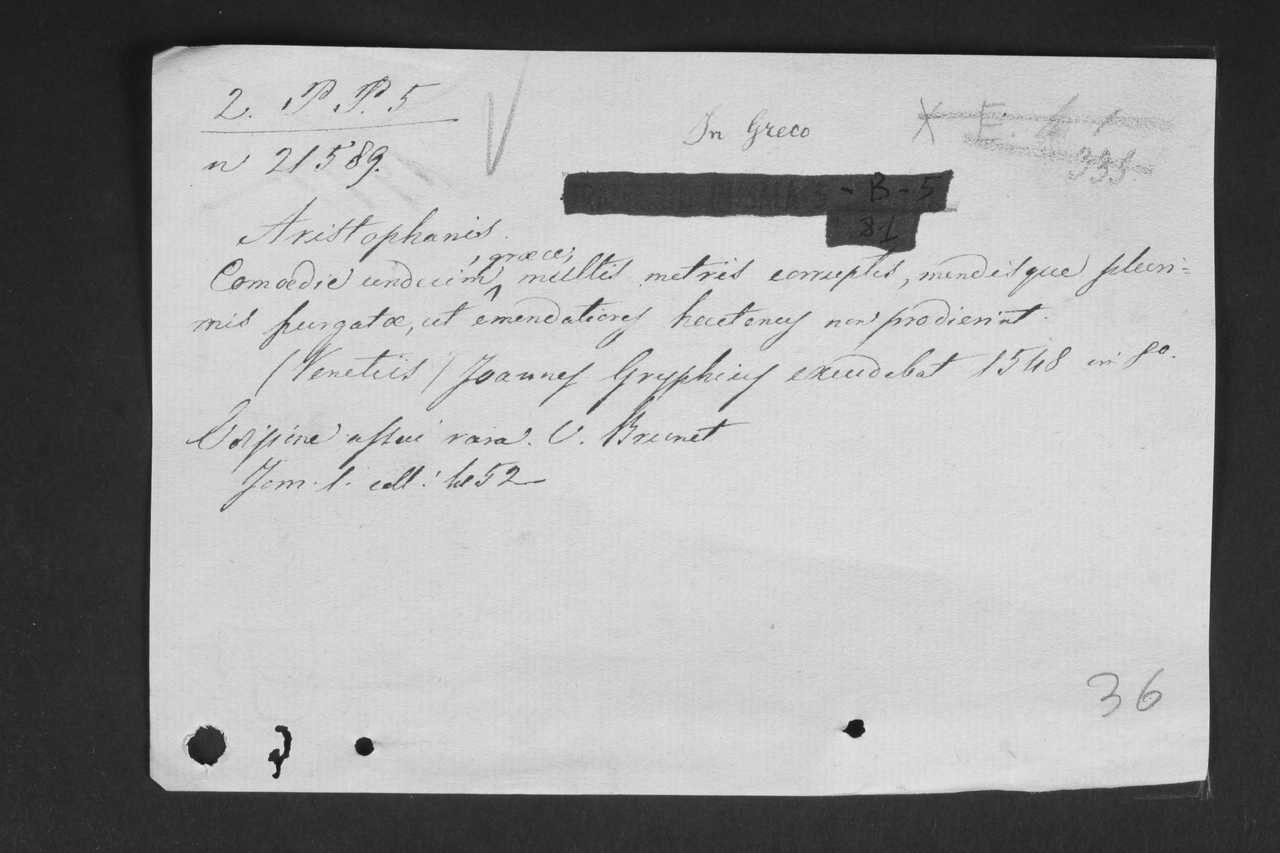 2. P. P. 5
n 21589.
In Greco
X E.
335
- B - 5
81
Aristophanis.
Comoedie undecim, græce, multis metris corruptis, mendisque pluri=
mis purgatæ, ut emendatiores hactenus non prodierint.
(Venetiis) Joannes Gryphius excudebat 1548 in 8o.
assai rara. V. Brunet
Tom. 1. coll: 52
36